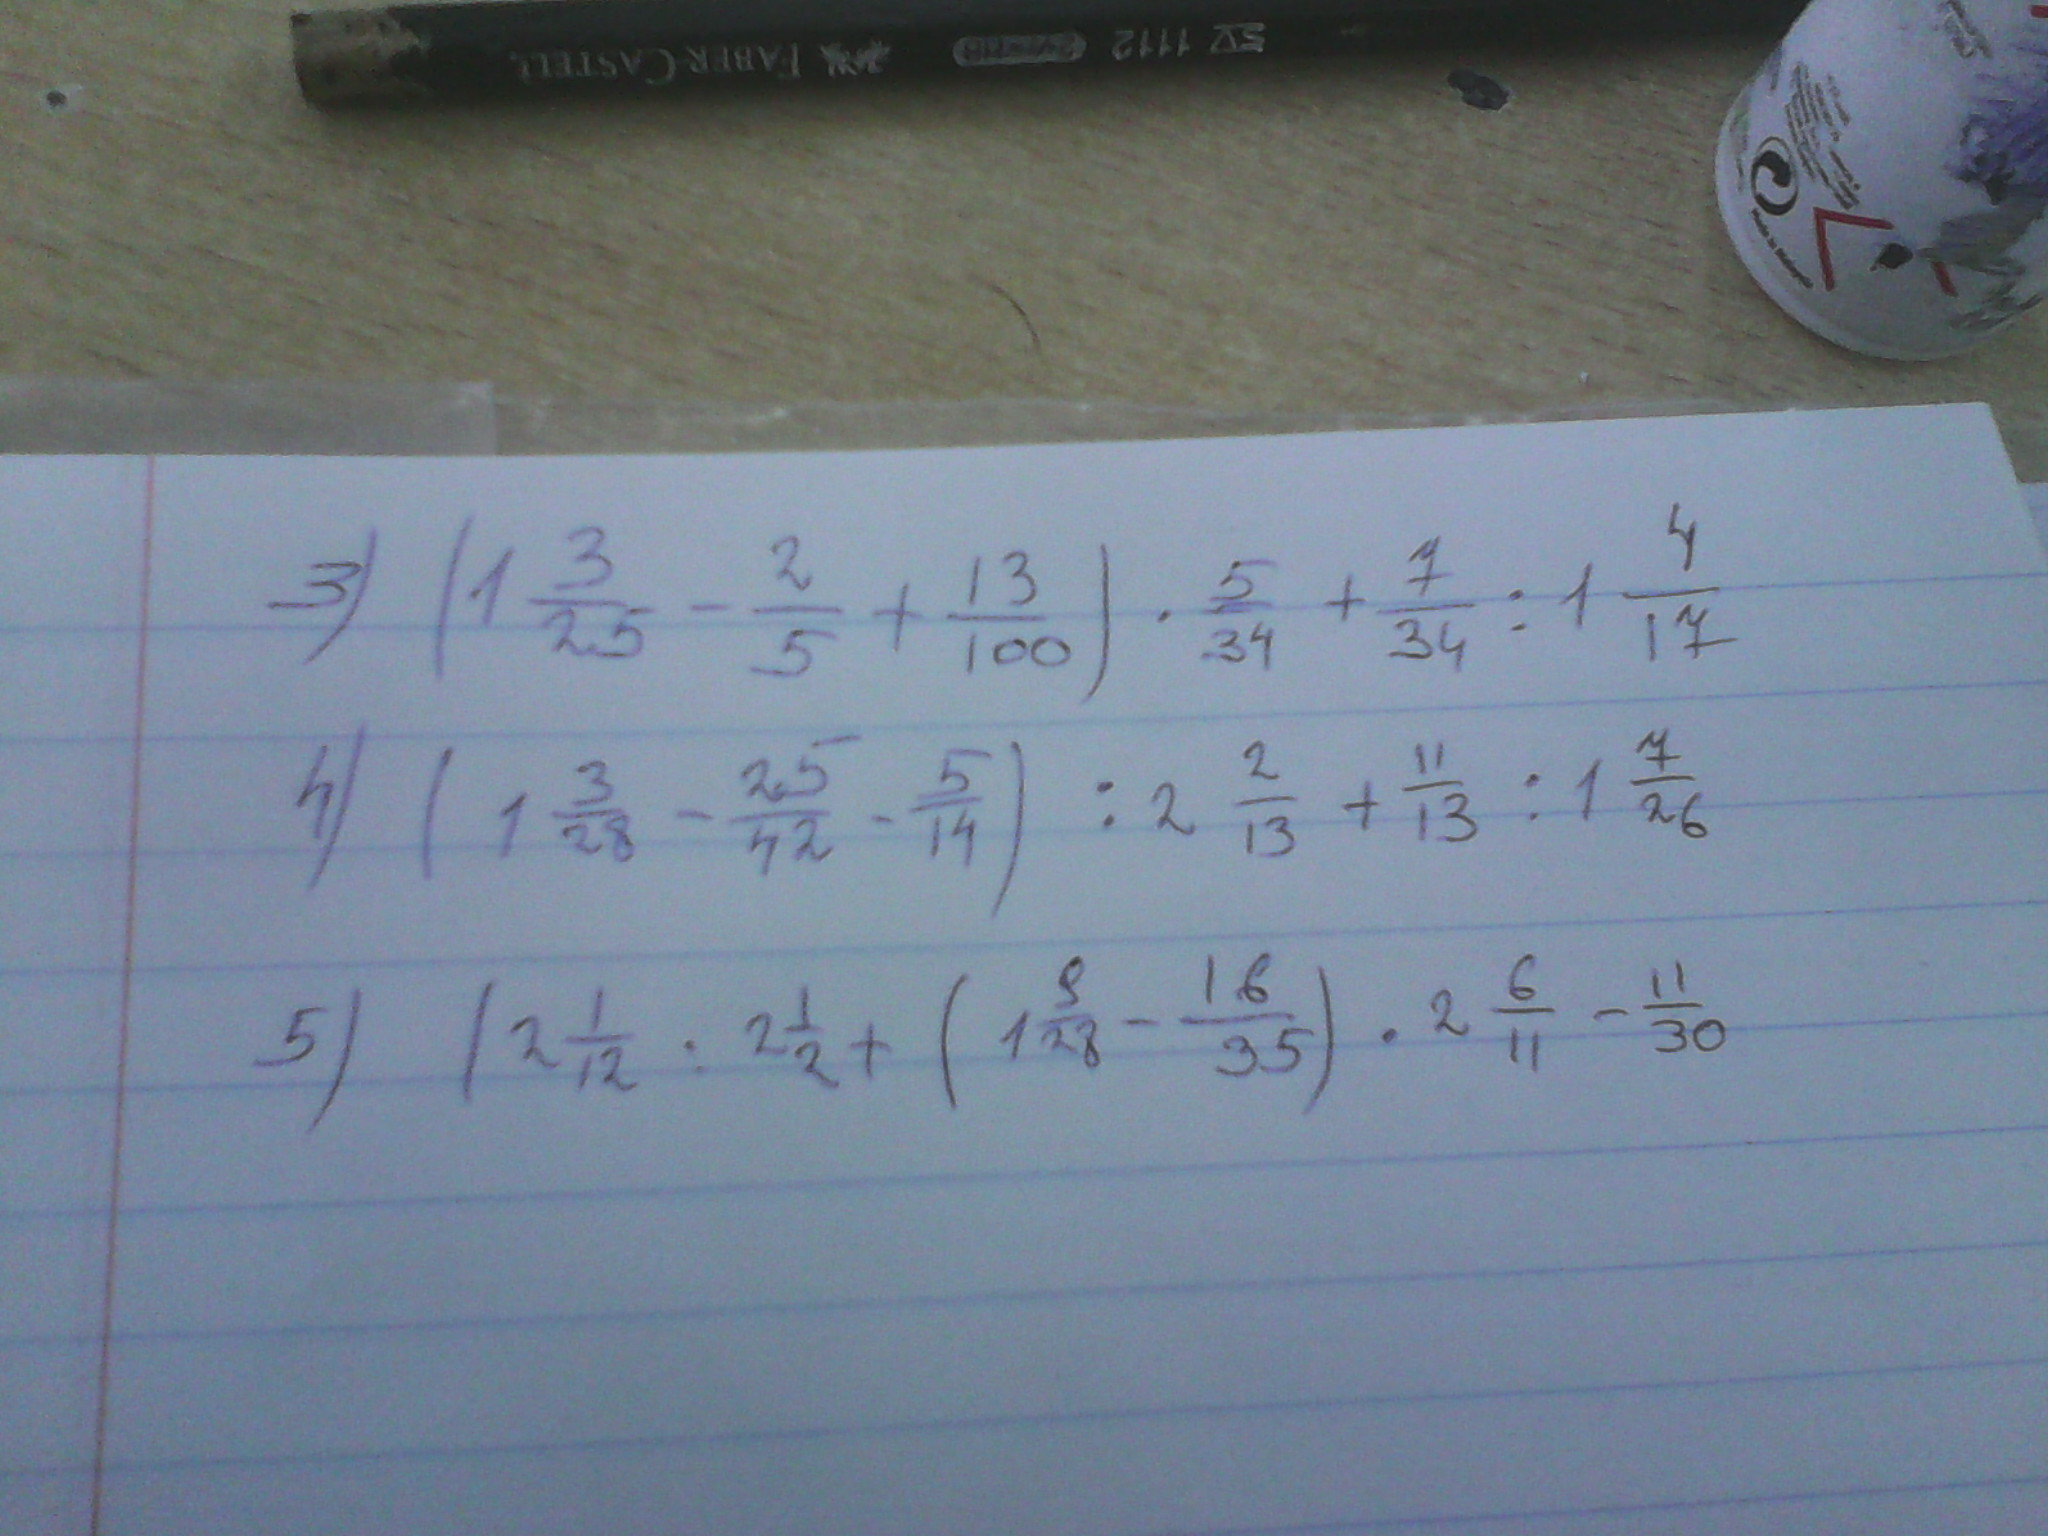 FABER-CASTELL 1112
3) (1 3/25 - 2/5 + 13/100) · 5/34 + 7/34 : 1 4/17
4) (1 3/28 - 25/42 - 5/14) : 2 2/13 + 11/13 : 1 7/26
5) (2 1/12 : 2 1/2 + (1 9/28 - 16/35) · 2 6/11 - 11/30